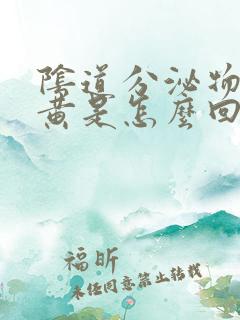 陰道分泌物
黃是怎麼回
福昕
未任同意禁止轉載